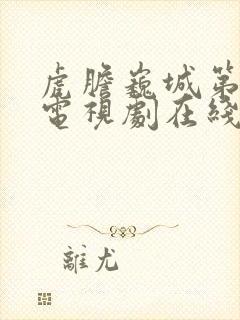 虎膽巍城第
電視劇在綫
離尤